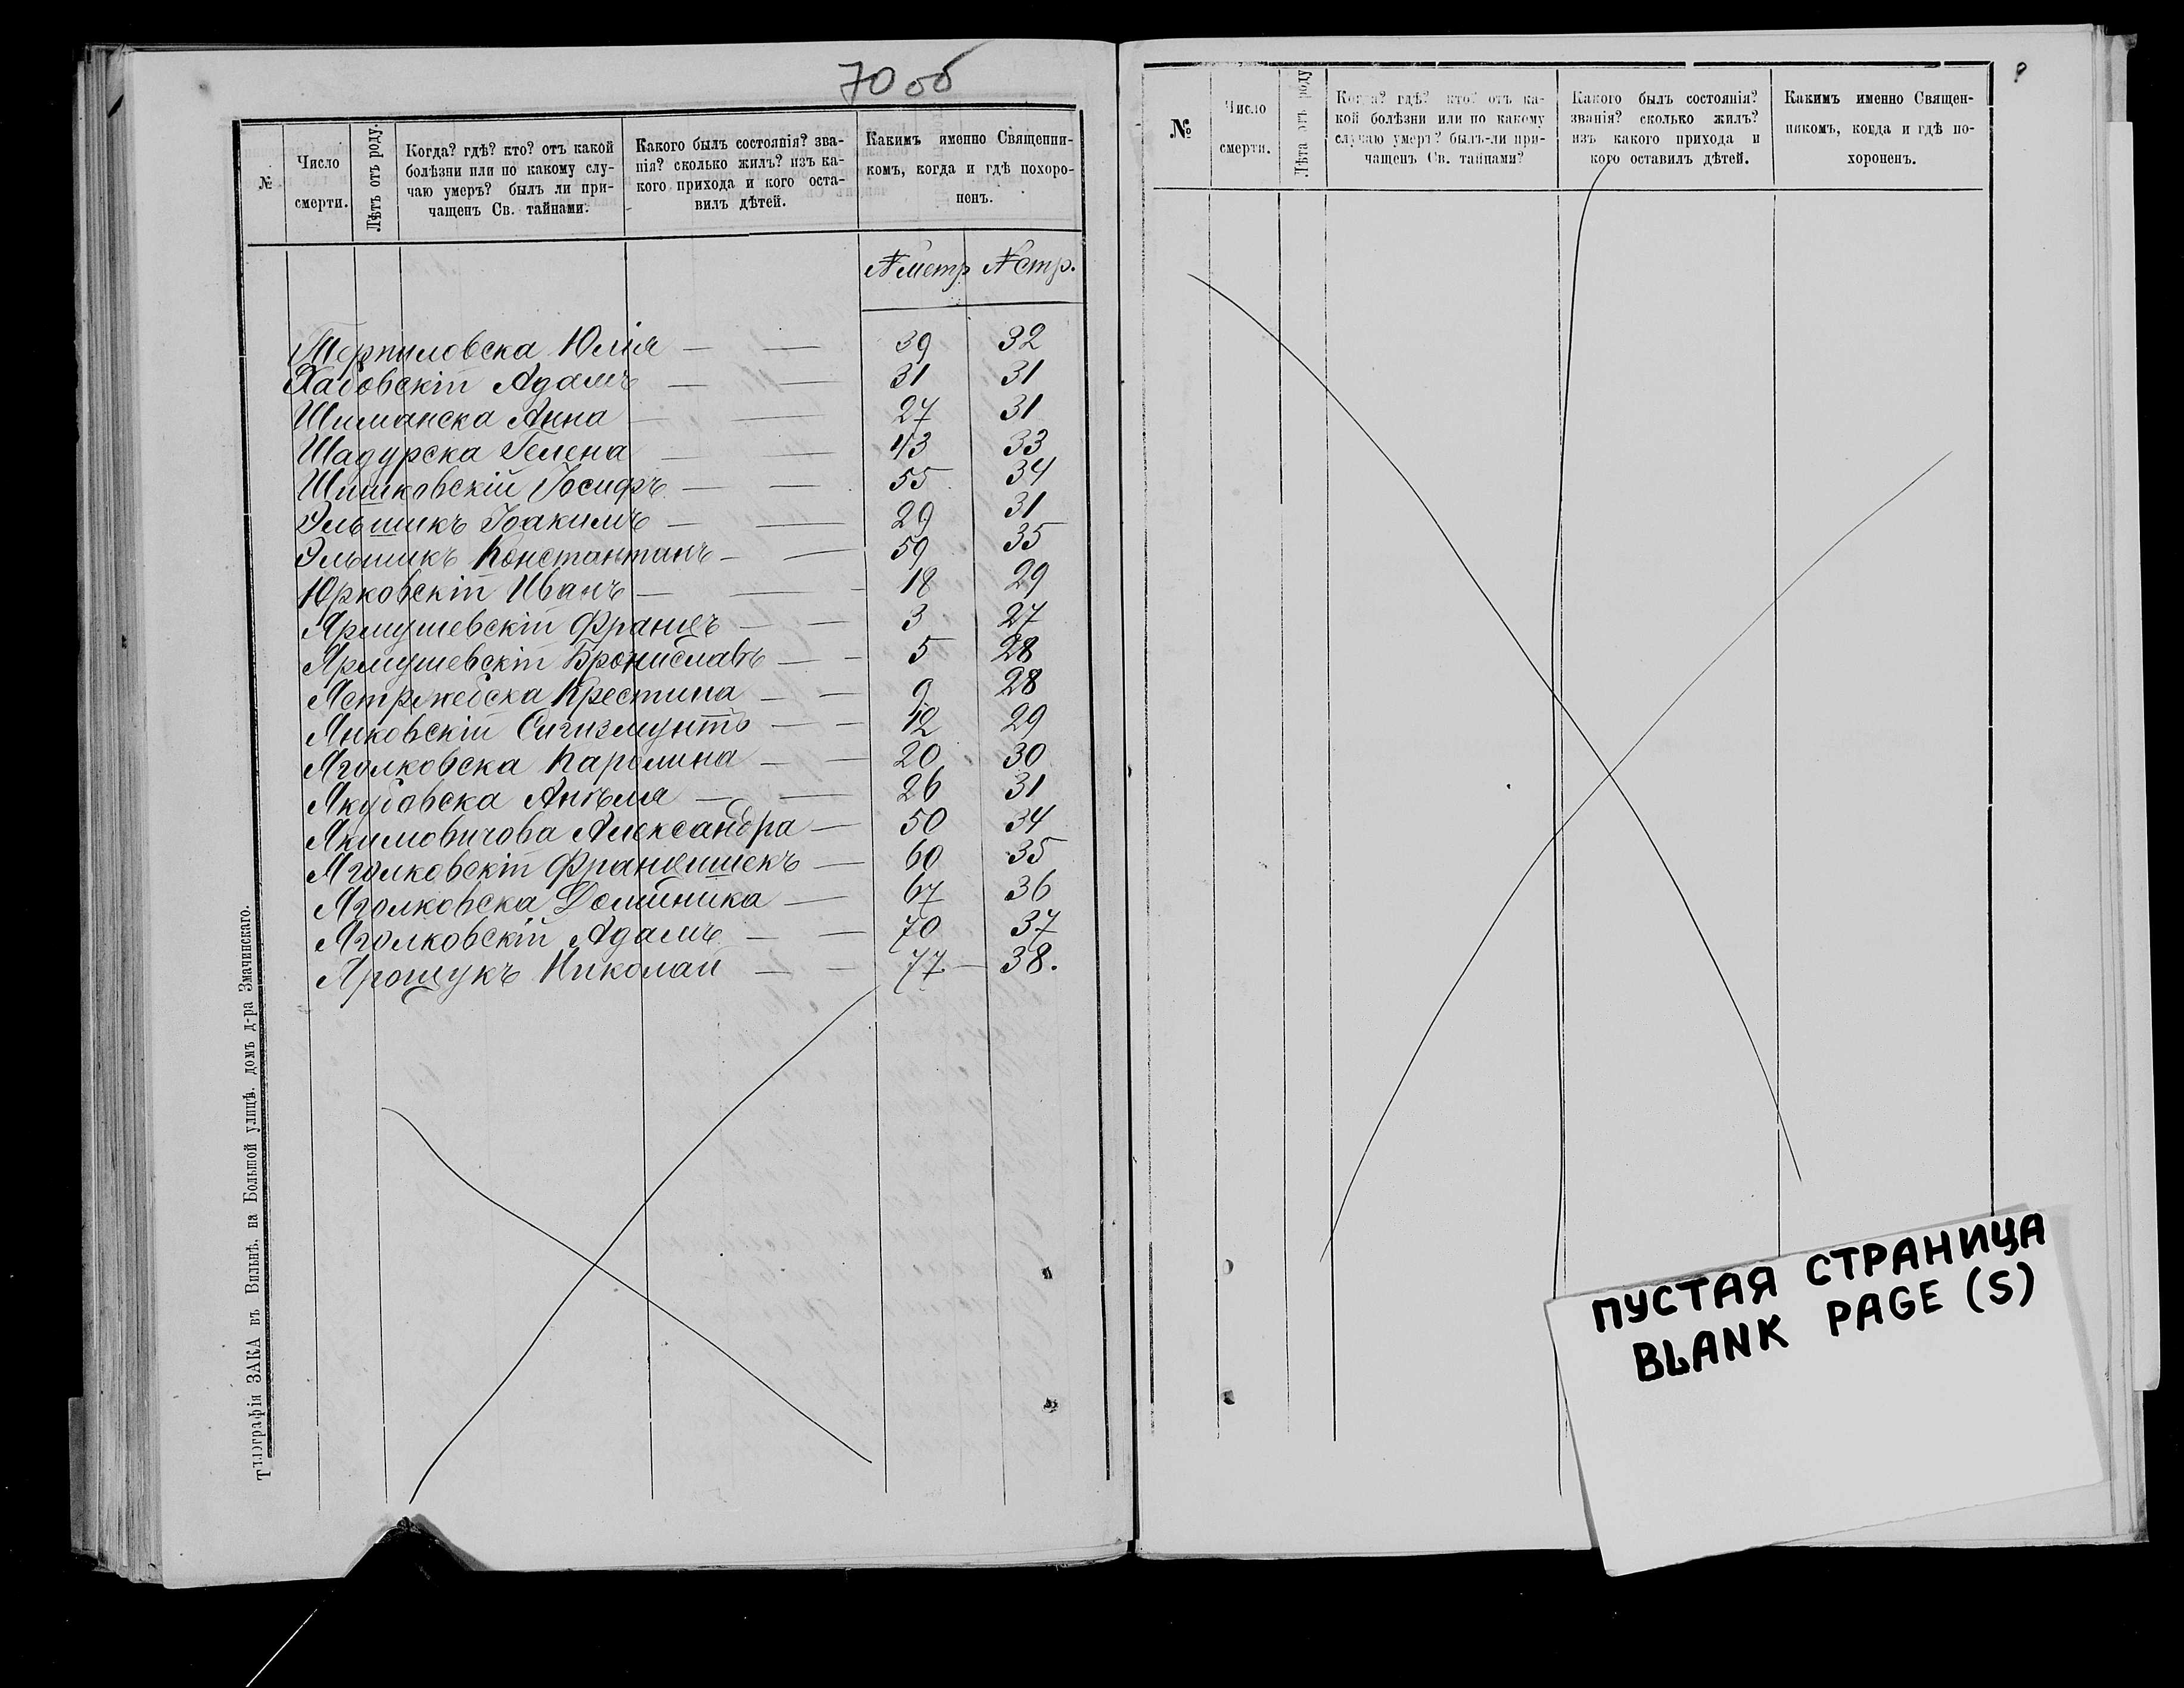 70 об
№
Число
смерти.
Лѣтъ отъ роду.
Когда? гдѣ? кто? отъ какой
болѣзни или по какому слу-
чаю умеръ? былъ ли при-
чащенъ Св. тайнами.
Какого былъ состоянія? зва-
нія? сколько жилъ? изъ ка-
кого прихода и кого оста-
вилъ дѣтей.
Какимъ именно Священни-
комъ, когда и гдѣ похоро-
ненъ.
№ метр № стр.
Терпиловска Юлія — — 39 32
Хабовскій Адамъ — — 31 31
Шиманска Анна — — 27 31
Шадурска Гелена — — 43 33
Шишковскій Іосифъ — — 55 34
Эльшикъ Іоакимъ — — 29 31
Эльшикъ Константанъ — — 59 35
Юрковскій Иванъ — — 18 29
Ярмушевскій Францъ — — 3 27
Ярмушевскій Брониславъ — — 5 28
Ястржебска Крестина — — 9 28
Янковскій Сигизмунтъ — — 12 29
Яголковска Каролина — — 20 30
Якубовска Анѣля — — 26 31
Якимовичова Александра — 50 34
Яголковскій Францишекъ — 60 35
Яголковска Доминика — 67 36
Яголковскій Адамъ — — 70 37
Ярощукъ Николай — — 77. — 38.
Типографія ЗАКА въ Вильнѣ, на Большой улицѣ, домъ д-ра Змачинскаго.
№
Число
смерти.
Лѣта отъ роду
Когда? гдѣ? кто? отъ ка-
кой болѣзни или по какому
случаю умеръ? былъ-ли при-
чащенъ Св. тайнами?
Какого былъ состоянія?
званія? сколько жилъ?
изъ какого прихода и
кого оставилъ дѣтей.
Какимъ именно Священ-
никомъ, когда и гдѣ по-
хороненъ.
ПУСТАЯ СТРАНИЦА
BLANK PAGE (S)